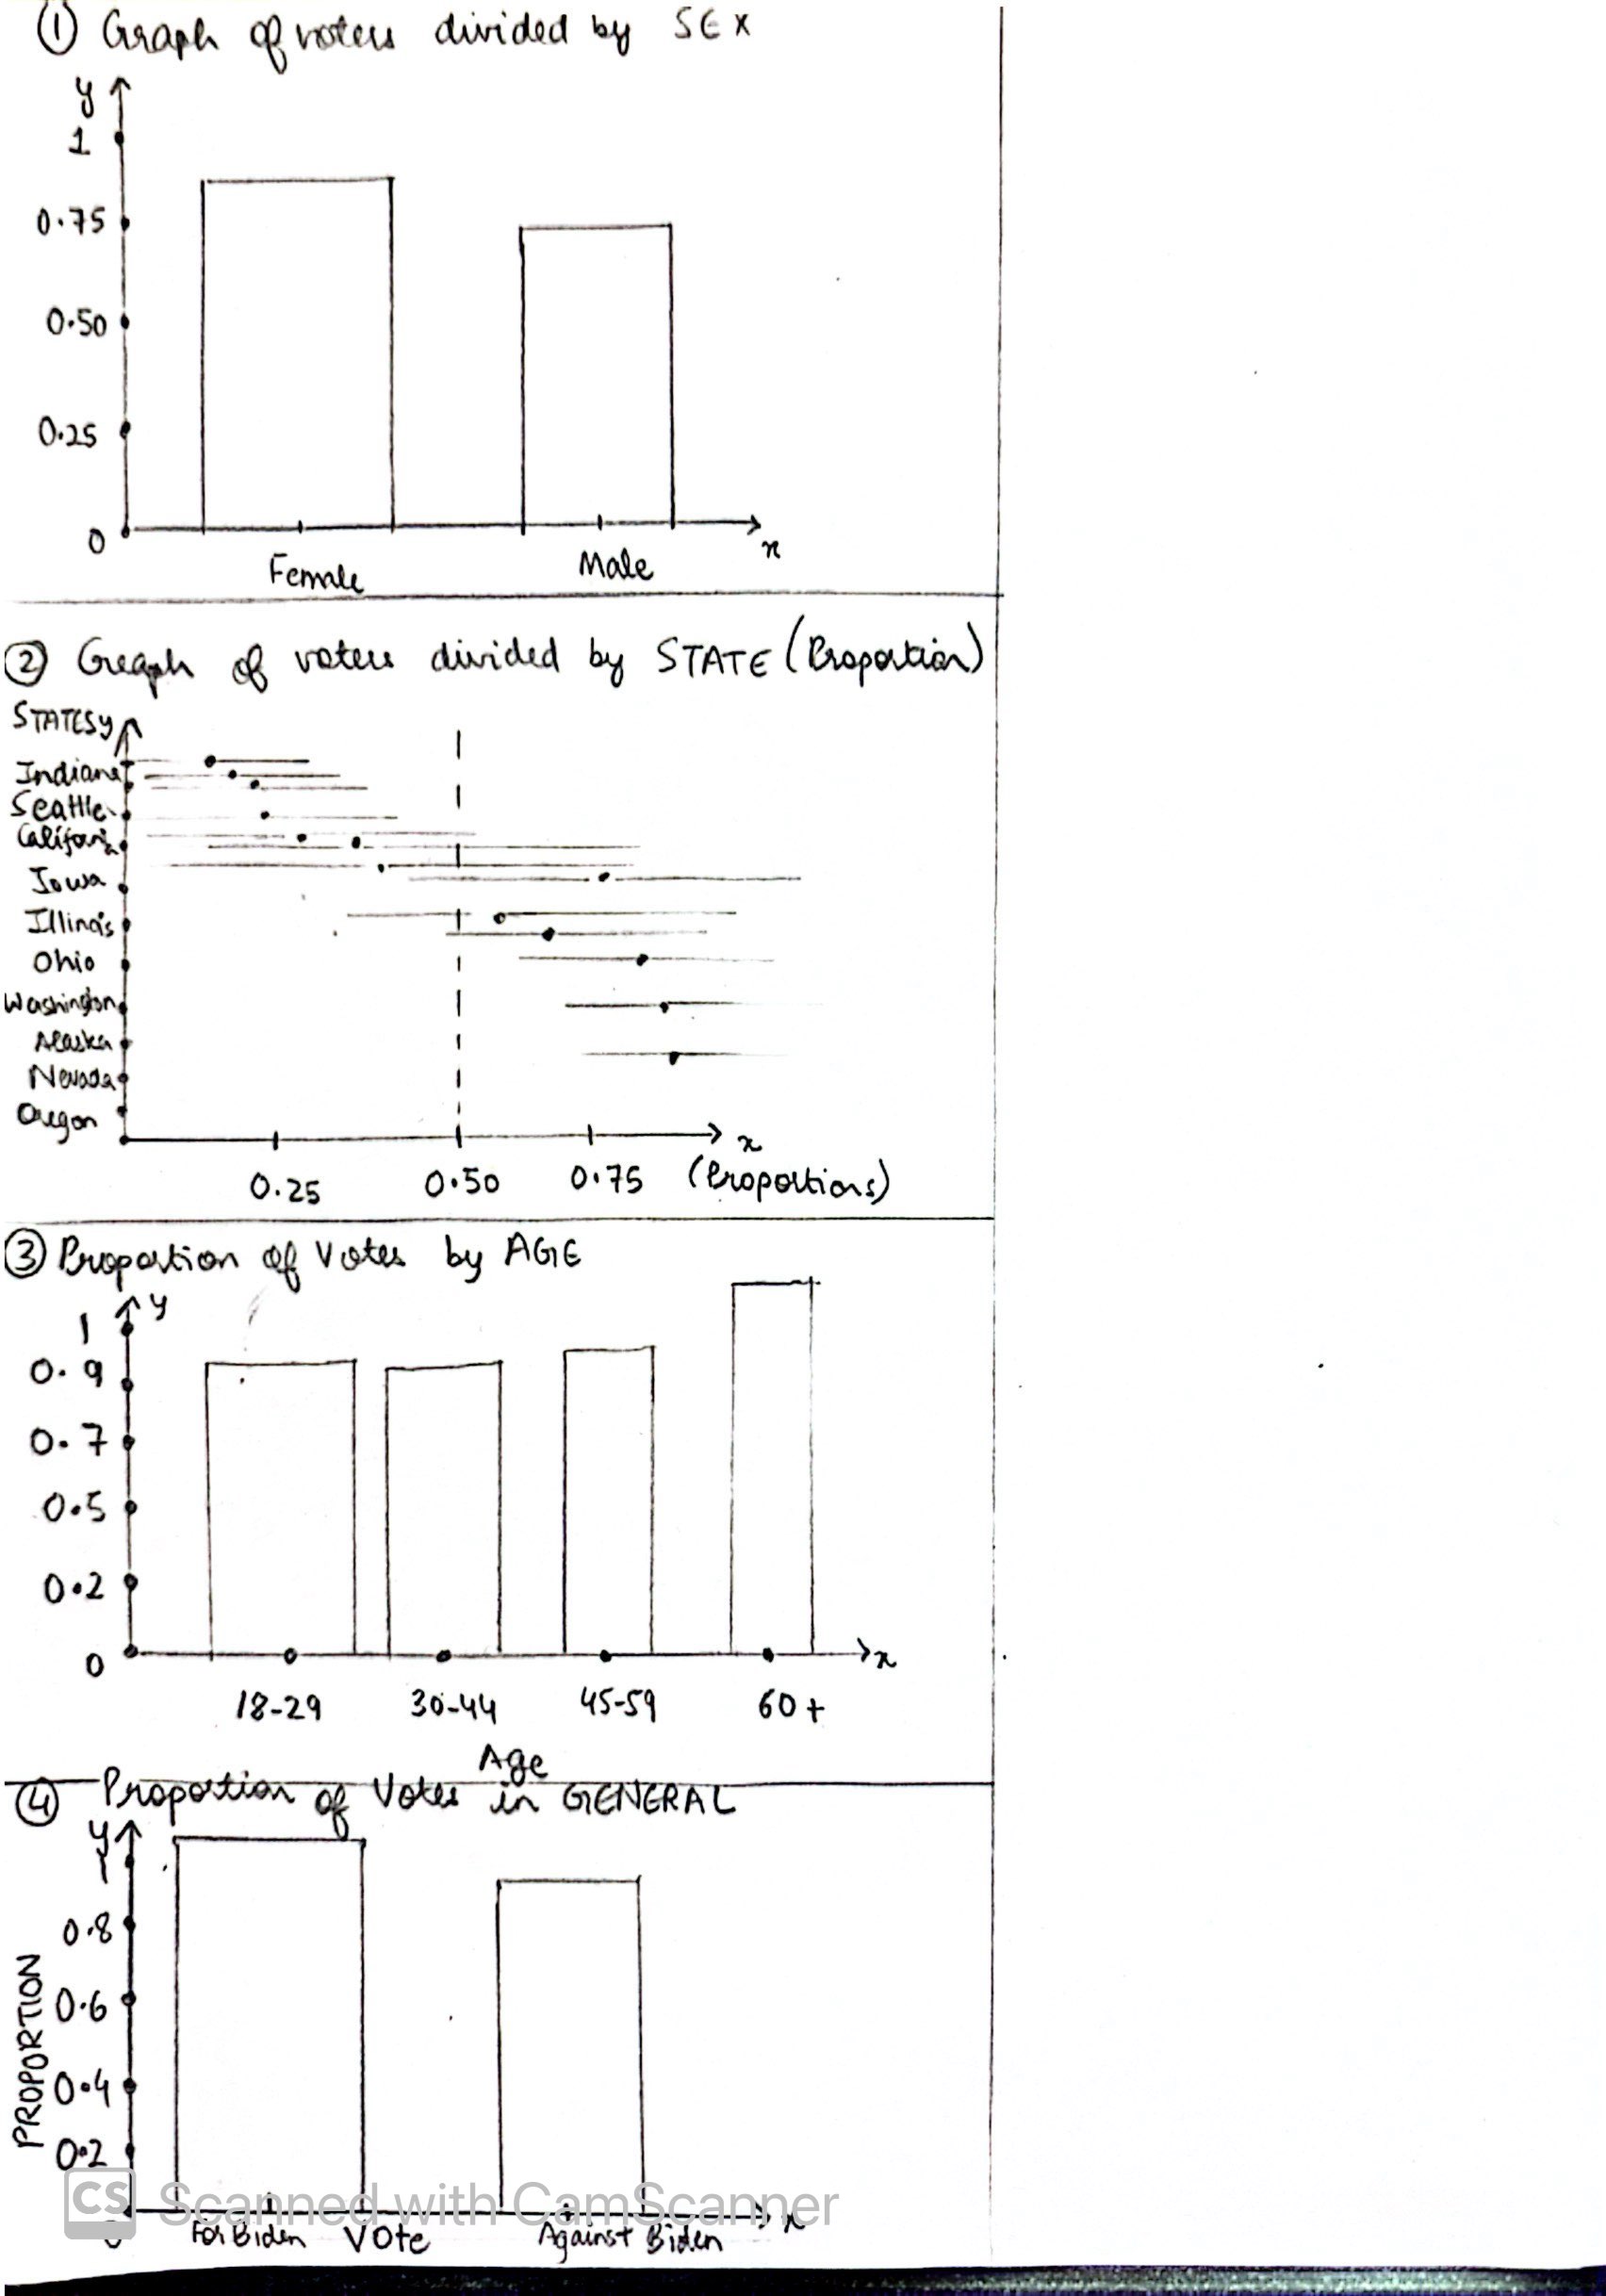 ① Graph of voters divided by SEX
y
1
0.75
0.50
0.25
0
Female Male
x
② Graph of voters divided by STATE (Proportion)
STATES y
Indiana
Seattle
California
Iowa
Illinois
Ohio
Washington
Alaska
Nevada
Oregon
x
0.25 0.50 0.75 (Proportions)
③ Proportion of Votes by AGE
y
1
0.9
0.7
0.5
0.2
0
x
18-29 30-44 45-59 60+
Age
④ Proportion of Votes in GENERAL
y
1
0.8
0.6
0.4
0.2
PROPORTION
CS Scanned with CamScanner
x
For Biden Vote Against Biden